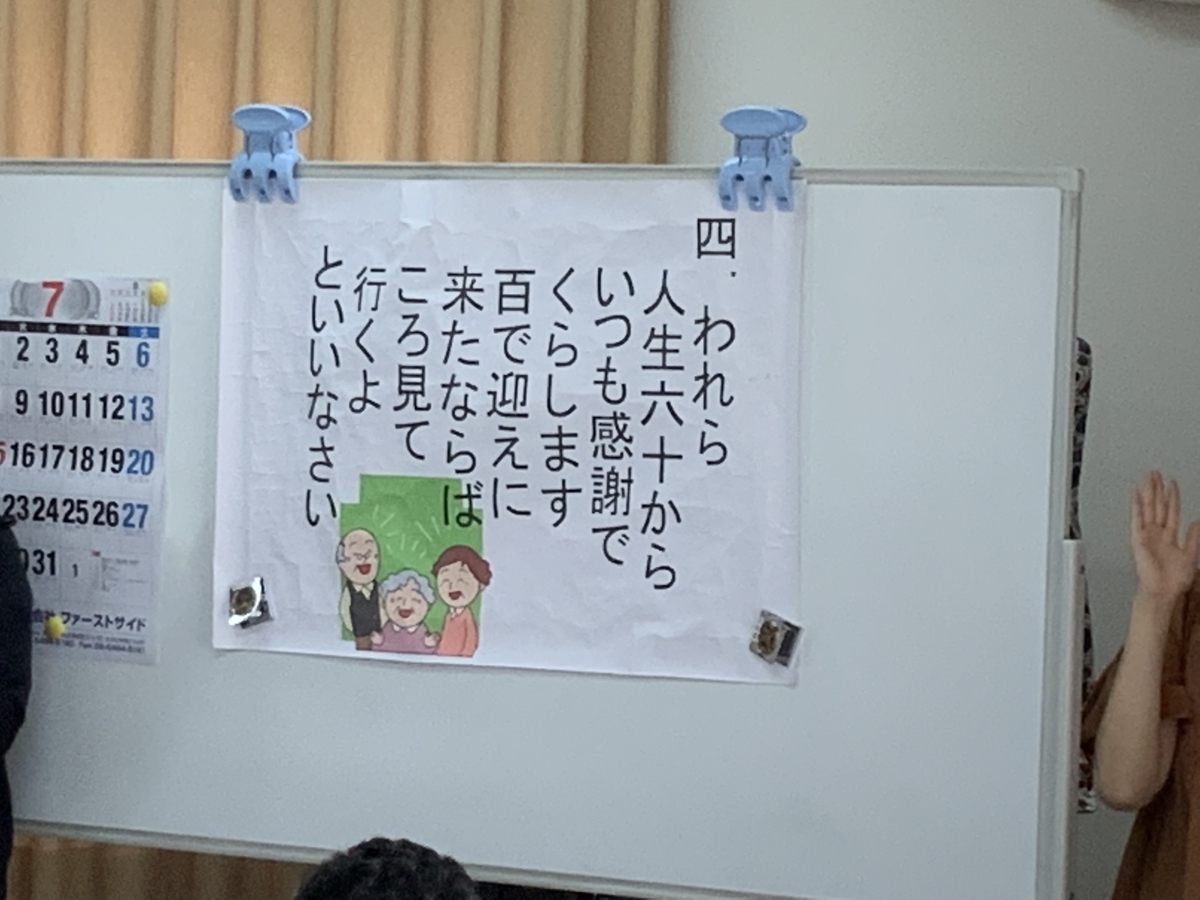 四．われら
人生六十から
いつも感謝で
くらします
百で迎えに
来たならば
ころ見て
行くよ
といいなさい
7
2 3 4 5 6
9 10 11 12 13
16 17 18 19 20
23 24 25 26 27
31 1
ファーストサイド